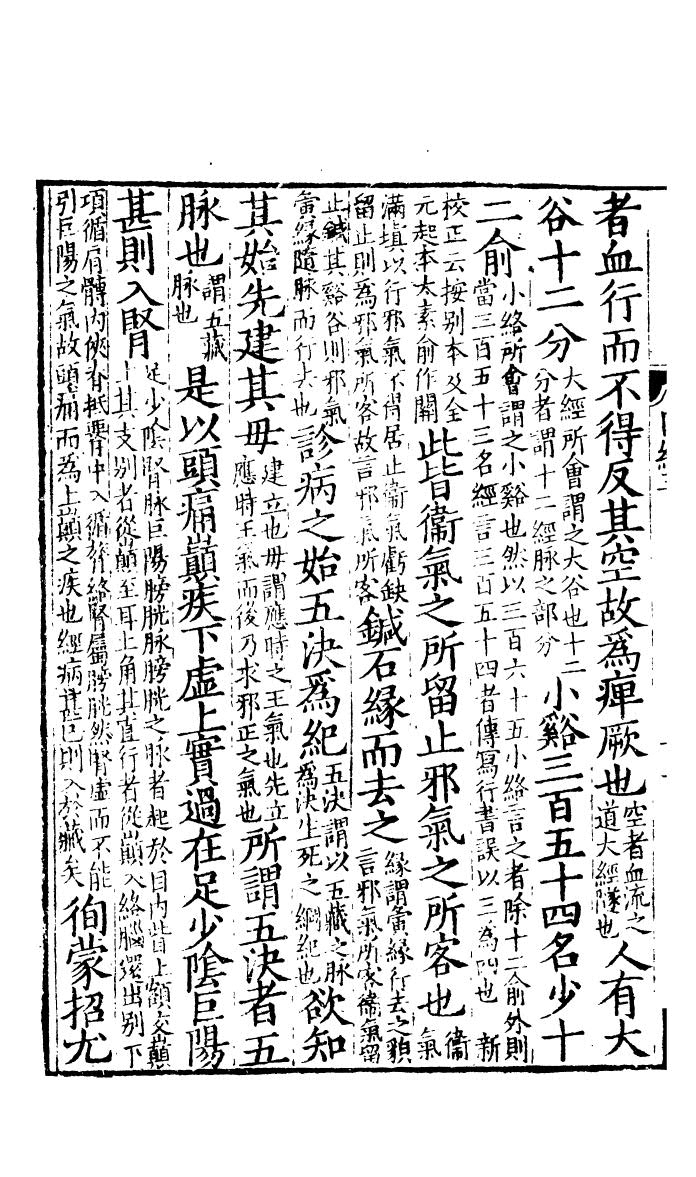 者血行而不得反其空故爲痺厥也空者血流之道大經隧也人有大
谷十二分大經所會謂之大谷也十二分者謂十二經脉之部分小谿三百五十四名少十
二俞小絡所會謂之小谿也然以三百六十五小絡言之者除十二俞外則當三百五十三名經言三百五十四者傳寫行書誤以三爲四也 新
校正云按别本及全元起本太素俞作關此皆衞氣之所留止邪氣之所客也衞氣
滿填以行邪氣不得居止衞氣虧缺留止則爲邪氣所客故言邪氣所客鍼石緣而去之緣謂夤緣行去之貌言邪氣所客衞氣留
止鍼其谿谷則邪氣夤緣隨脉而行去也診病之始五決爲紀五決謂以五藏之脉爲決生死之綱紀也欲知
其始先建其母建立也母謂應時之王氣也先立應時王氣而後乃求邪正之氣也所謂五決者五
脉也謂五藏脉也是以頭痛巔疾下虛上實過在足少陰巨陽
甚則入腎足少陰腎脉巨陽膀胱脉膀胱之脉者起於目內眥上額交巔上其支别者從巔至耳上角其直行者從巔入絡腦還出别下
項循肩髆內俠脊抵腰中入循膂絡腎屬膀胱然腎虛而不能引巨陽之氣故頭痛而爲上巔之疾也經病甚已則入於藏矣徇蒙招尤